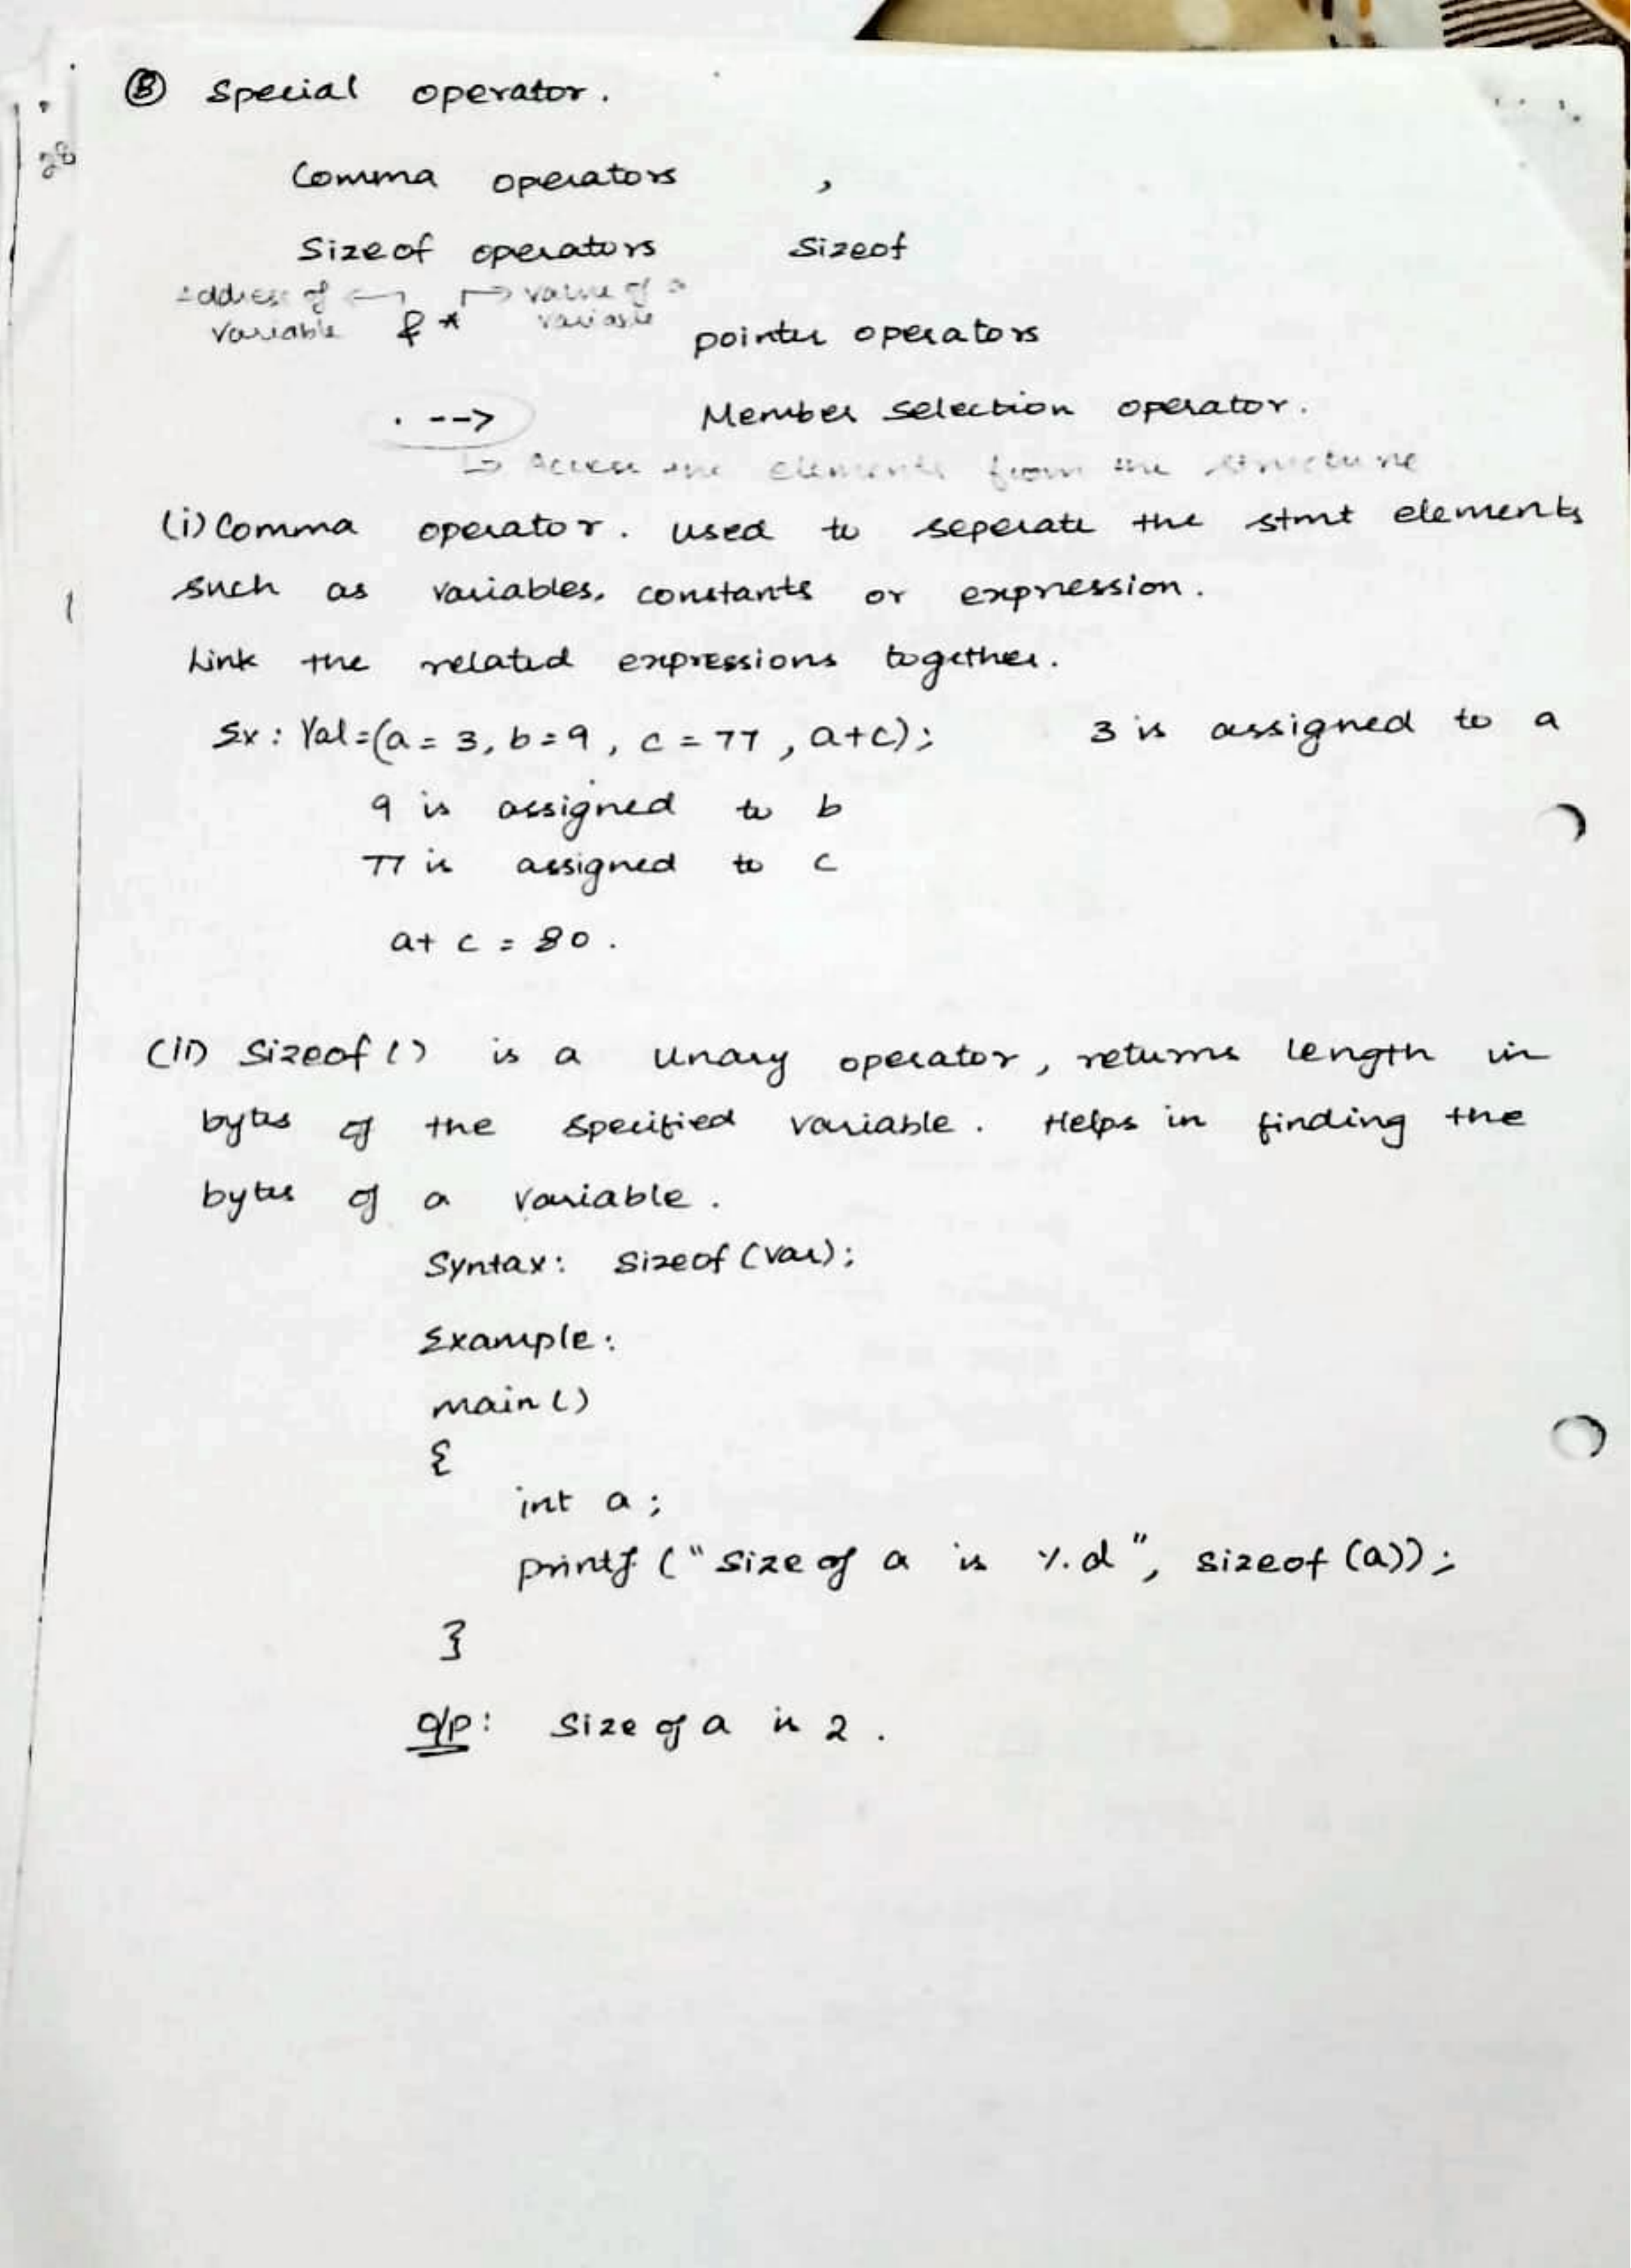 ⑧ Special operator.
28
Comma operators ,
Sizeof operators Sizeof
address of ← → value of a
variable & * variable
pointer operators
. --> Member selection operator.
↳ Access the elements from the structure
(i) Comma operator. used to seperate the stmt elements
such as variables, constants or expression.
Link the related expressions together.
Ex: Val=(a = 3, b=9, c = 77, a+c); 3 is assigned to a
9 is assigned to b
77 is assigned to c
a+ c = 80.
(ii) Sizeof() is a unary operator, returns length in
bytes of the specified variable. Helps in finding the
bytes of a variable.
Syntax: Sizeof (var);
Example:
main()
{
int a;
printf ("Size of a is %d", sizeof (a));
}
o/p: Size of a is 2.